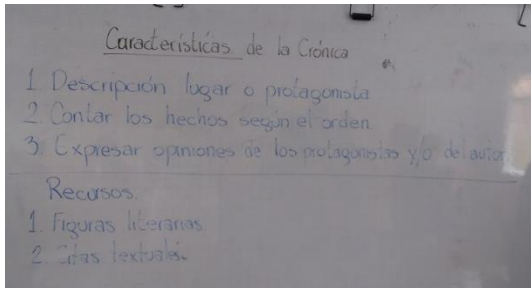 Características de la Crónica
1. Descripción lugar o protagonista
2. Contar los hechos según el orden
3. Expresar opiniones de los protagonistas y/o del autor
Recursos.
1. Figuras literarias
2. Citas textuales.